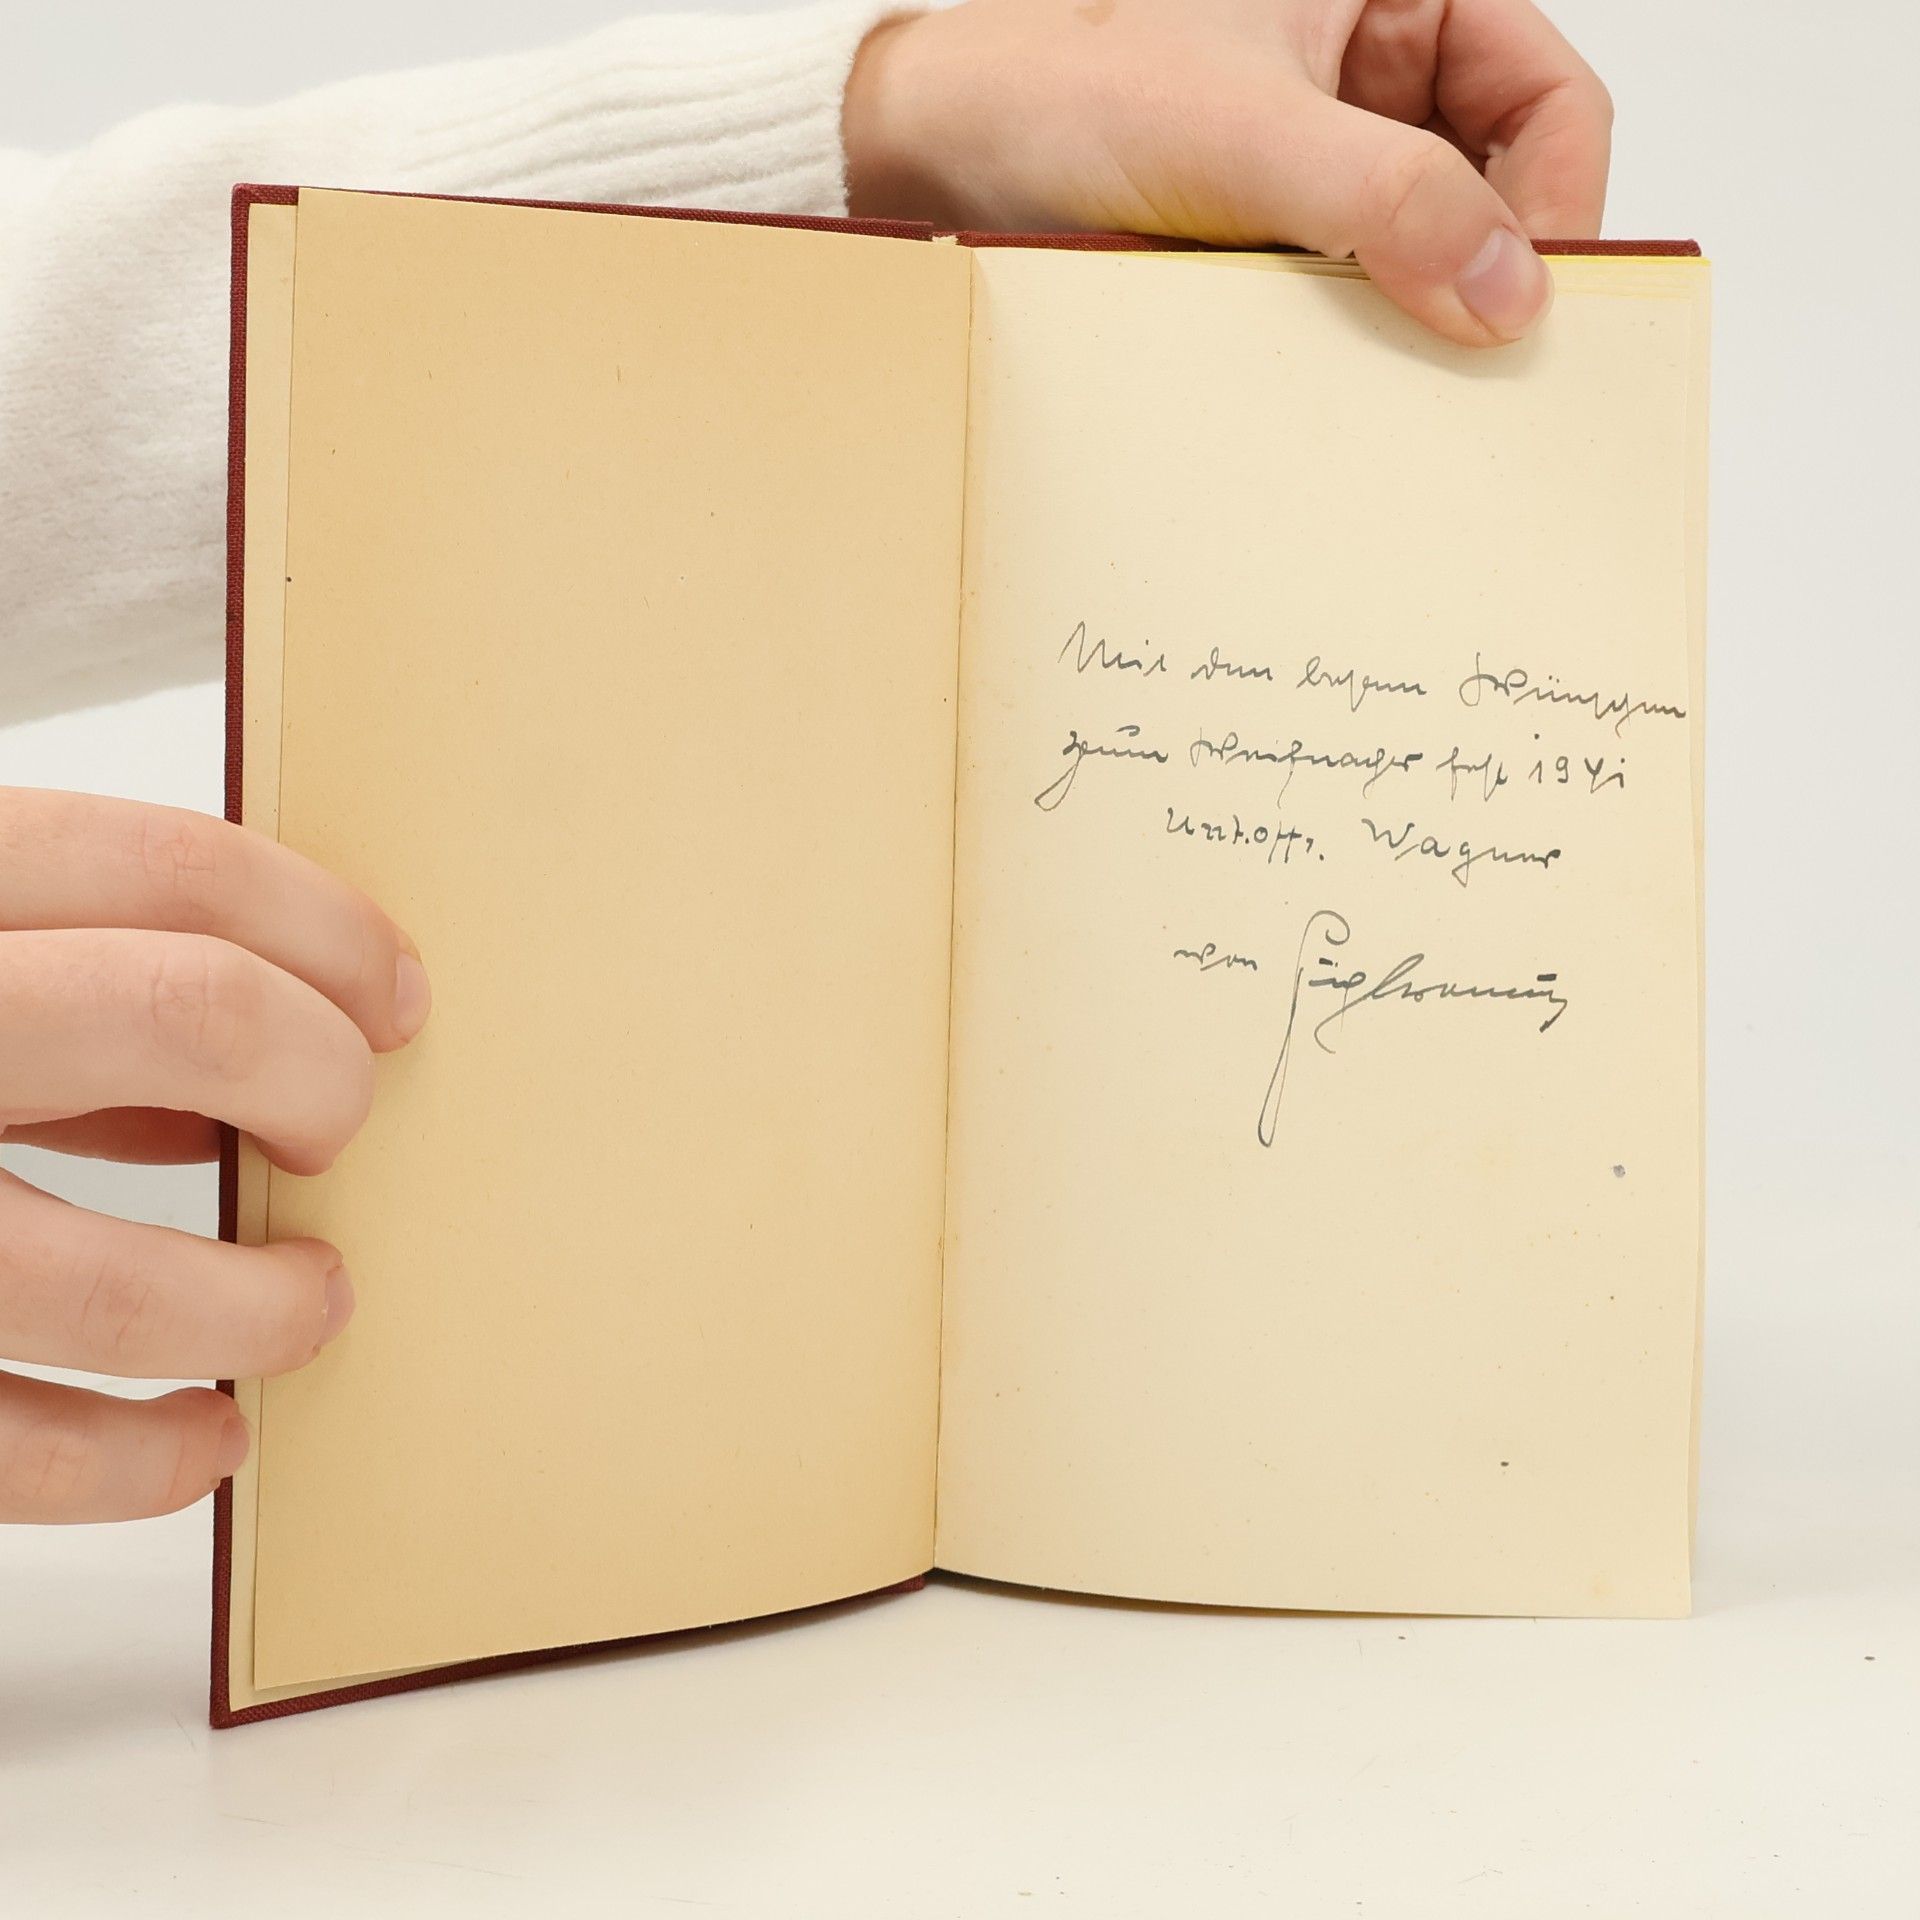 Mit den besten Wünschen
zum Weihnachtsfest 1941
Untoffz. Wagner
von